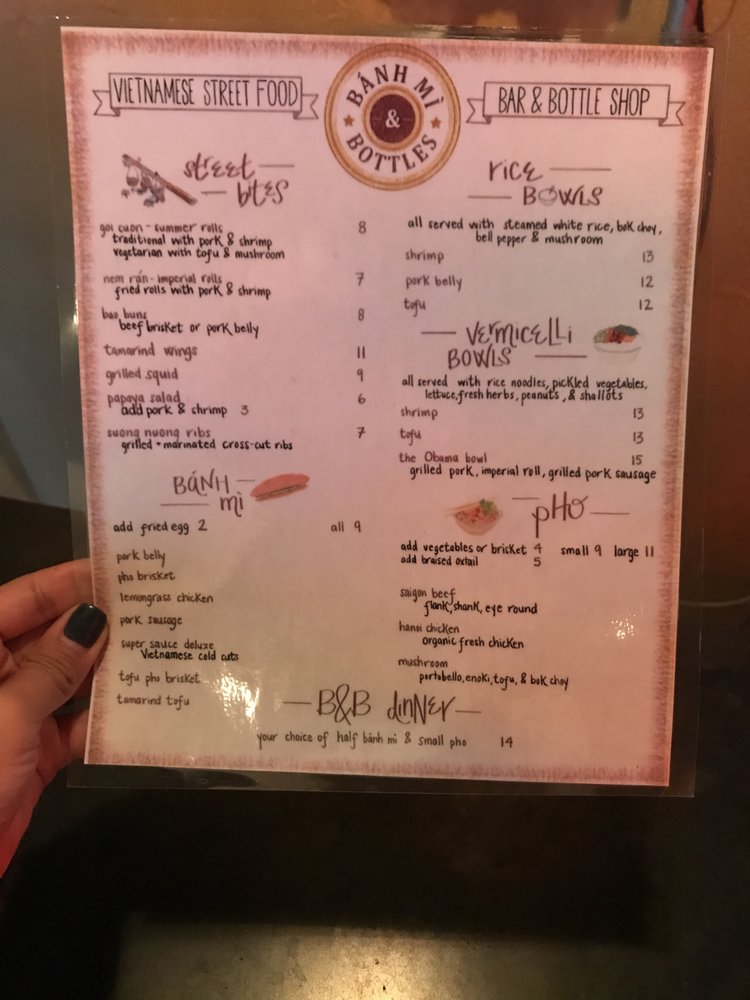 VIETNAMESE STREET FOOD
BÁNH MÌ
&
BOTTLES
BAR & BOTTLE SHOP
street
bites
goi cuon - summer rolls 8
traditional with pork & shrimp
vegetarian with tofu & mushroom
nem rán - imperial rolls 7
fried rolls with pork & shrimp
bao buns 8
beef brisket or pork belly
tamarind wings 11
grilled squid 9
papaya salad 6
add pork & shrimp 3
suong nuong ribs 7
grilled + marinated cross-cut ribs
BÁNH
mì
add fried egg 2 all 9
pork belly
pho brisket
lemongrass chicken
pork sausage
super sauce deluxe
Vietnamese cold cuts
tofu pho brisket
tamarind tofu
rice
BOWLS
all served with steamed white rice, bok choy,
bell pepper & mushroom
shrimp 13
pork belly 12
tofu 12
vermicelli
BOWLS
all served with rice noodles, pickled vegetables,
lettuce, fresh herbs, peanuts, & shallots
shrimp 13
tofu 13
the Obama bowl 15
grilled pork, imperial roll, grilled pork sausage
pHo
add vegetables or brisket 4 small 9 large 11
add braised oxtail 5
saigon beef
flank, shank, eye round
hanoi chicken
organic fresh chicken
mushroom
portobello, enoki, tofu, & bok choy
B&B dinner
your choice of half bánh mì & small pho 14